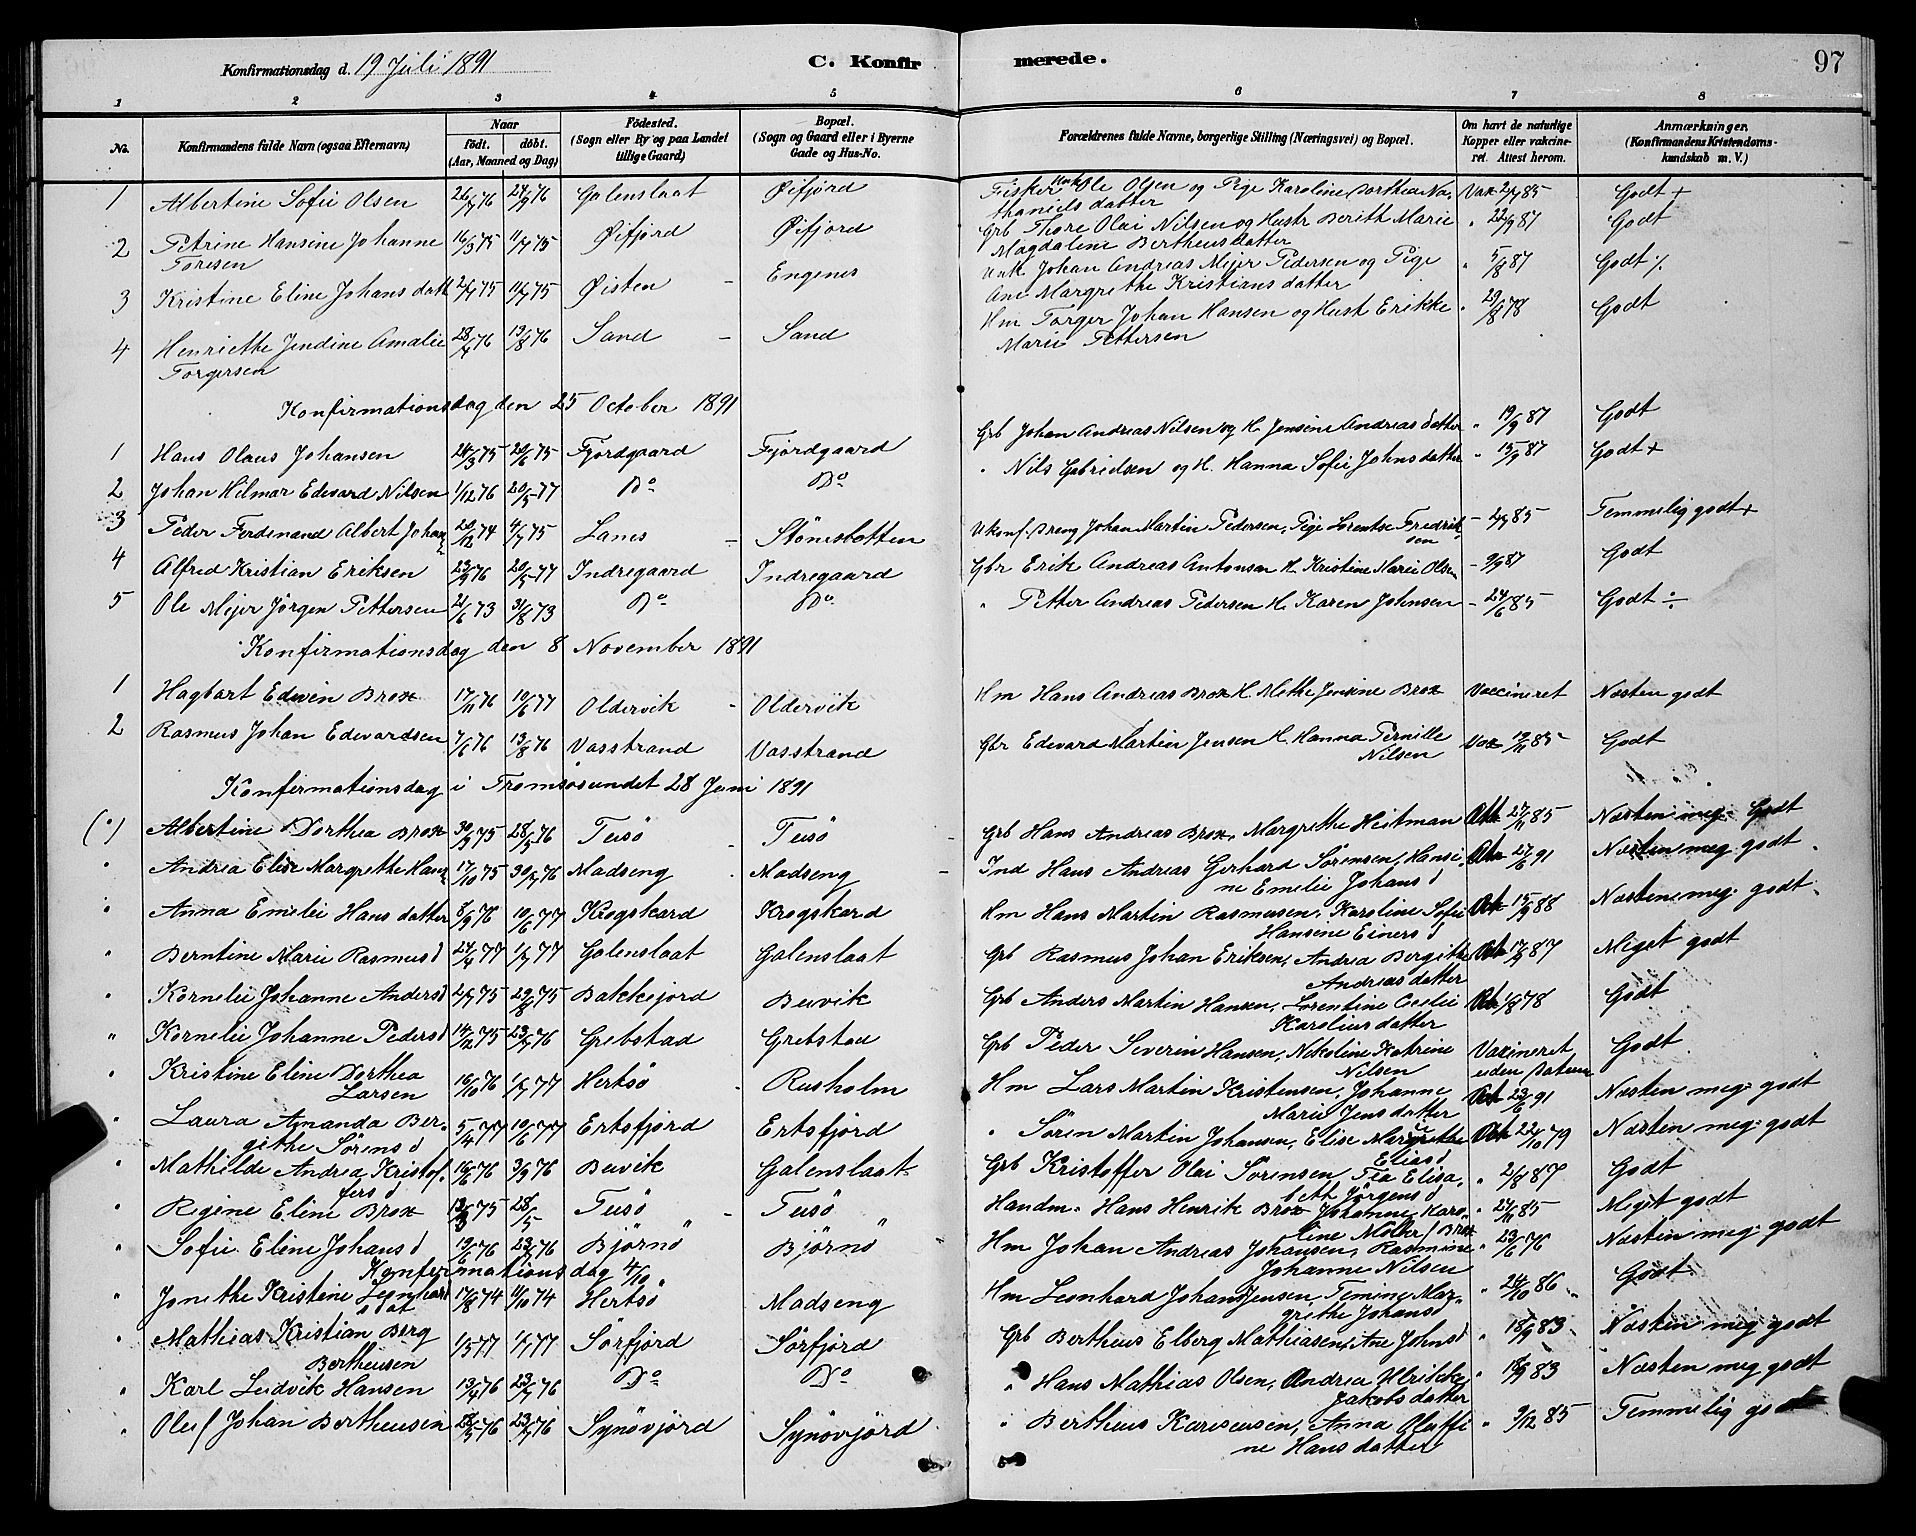 Konfirmationsdag d. 19 Juli 1891
C. Konfirmerede.
97
1 2 3 4 5 6 7 8
No.
Konfirmandens fulde Navn (ogsaa Efternavn)
Naar
født. døbt.
(Aar, Maaned og Dag)
Fødested.
(Sogn eller By og paa Landet tillige Gaard)
Bopæl.
(Sogn og Gaard eller i Byerne Gade og Hus-No.
Forældrenes fulde Navne, borgerlige Stilling (Næringsvei) og Bopæl.
Om havt de naturlige Kopper eller vakcineret. Attest herom.
Anmærkninger.
(Konfirmandens Kristendomskundskab m. V.)
1 Albertine Sofie Olsen 76 76 Galenslaat Øifjord Fisker Ole Olsen og Pige Karoline Dorthea Nathaniels datter Vax 85 Godt +
2 Petrine Hansine Johanne Toresen 16/3 75 11/7 75 Øifjord Øifjord Grb Thore Olai Nilsen og Hustr Berith Marie Magdalene Bertheusdatter " 22/9 87 Godt
3 Kristine Eline Johans datt 75 11/7 75 Øisten - Engenes Unk Johan Andreas Mejer Pedersen og Pige Ane Margrethe Kristians datter " 5/8 87 Godt ./.
4 Henriethe Jendine Amalie Torgersen 28/4 76 13/8 76 Sand - Sand Hm Torger Johan Hansen og Hust Erikke Marie Pettersen " 29/8 78 Godt
Konfirmationsdag den 25 October 1891
1 Hans Olaus Johansen 24/3 75 20/6 75 Fjordgaard Fjordgaard Grb Johan Andreas Nilsen og H. Jensine Andreas datter " 19/9 87 Godt
2 Johan Hilmar Edevard Nilsen 1/12 76 20/5 77 Do Do " Nils Gabrielsen og H. Hanna Sofie Johns datter " 15/9 87 Godt +
3 Peder Ferdinand Albert Johan 20/12 74 4/7 75 Lanes - Stönesbotten Ukonf. Dreng Johan Martin Pedersen, Pige Lorentse Fredriksen - 85 Temmelig godt +
4 Alfred Kristian Eriksen 23/9 76 20/5 77 Indregaard Indregaard Gbr Erik Andreas Antonsen H. Kristine Marie Olsen - 9/9 87 Godt
5 Ole Mejer Jörgen Pettersen 21/6 73 31/8 73 Do Do " Petter Andreas Pedersen H. Karen Johnsen - 24/6 85 Godt ÷
Konfirmationsdag den 8 November 1891
1 Hagbart Edvin Brox 17/11 76 10/6 77 Oldervik - Oldervik Hm Hans Andreas Brox H. Methe Jensine Brox Vaccineret Næsten godt
2 Rasmus Johan Edevardsen 7/6 76 13/8 76 Vasstrand Vasstrand Gbr Edevard Martin Jensen H. Hanna Pernille Nilsen Vax 19/11 85 Godt
Konfirmationsdag i Tromsösundet 28 Juni 1891
(") Albertine Dorthea Brox 30/9 75 28/5 76 Tusö - Tusö Grb Hans Andreas Brox, Margrethe Heitman Att 27/11 85 Næsten meg. Godt
" Andrea Elise Margrethe Hans 17/10 75 30/7 76 Madseng Madseng Ind Hans Andreas Gerhard Sörensen, Hansine Emelie Johans d 27/6 91 Næsten meg godt
" Anna Emelie Hans datter 8/9 76 10/6 77 Krogskard Krogskard Hm Hans Martin Rasmussen, Karoline Sofie Hansene Einers d 15/9 88 Næsten meg. godt
" Berntine Marie Rasmus d 24/4 77 77 Galenslaat Galenslaat Grb Rasmus Johan Eriksen, Andrea Bergitte Andreas datter 87 Meget godt
" Kornelie Johanne Anders d 75 29/8 75 Bakkejord Buvik Grb Anders Martin Hansen, Lorentine Cecelie Karolius datter 78 Godt
" Kornelie Johanne Peders d 14/12 75 23/7 76 Grebstad Grebstad Grb Peder Severin Hansen, Nikoline Katrine Nilsen Vaxineret uden Datum Godt
" Kristine Eline Dorthea Larsen 16/10 76 77 Hertsö - Rusholm Hm Lars Martin Kristensen, Johanne Marie Jens datter 23/6 91 Næsten meg. godt
" Laura Amanda Bergithe Sörens d 5/4 77 10/6 77 Ertsfjord Ertsfjord " Sören Martin Johansen, Elise Margrethe Elias d 22/10 79 Næsten meg. godt
" Mathilde Andrea Kristoffers d 16/6 76 3/9 76 Buvik Galenslaat Grb Kristoffer Olai Sörensen, Pea Elisabeth Jörgens d " 87 Godt
" Regine Eline Brox 75 28/5 Tusö - Tusö Handm. Hans Henrik Brox, Johanne Karoline Molke f Brox " 27/11 85 Meget godt
" Sofie Eline Johans d 19/6 76 23/7 76 Björnö " Björnö " Hm Johan Andreas Johansen, Rasmine Johanne Nilsen " 23/6 76 Næsten meg. godt
Konfirmationsdag 4/10
" Jonethe Kristine Leonhards dat 17/8 74 11/10 74 Hertsö Madseng Hm Leonhard Johan Jensen, Femine Margrithe Johans d " 24/10 86 Godt
" Mathias Kristian Berg Bertheusen 1/5 77 77 Sörfjord Sörfjord Grb Bertheus Elberg Mathiasen, Ane Johns d " 18/9 83 Næsten meg godt
" Karl Ludvik Hansen 13/4 76 23/7 76 Do Do " Hans Mathias Olsen, Andrea Ulrikke Jakobs datter " 18/9 83 Næsten meg godt
" Oluf Johan Bertheusen 28/5 76 23/7 76 Synövjord Synövjord " Bertheus Kareliusen, Anna Oluffine Hans datter " 9/12 85 Temmelig godt